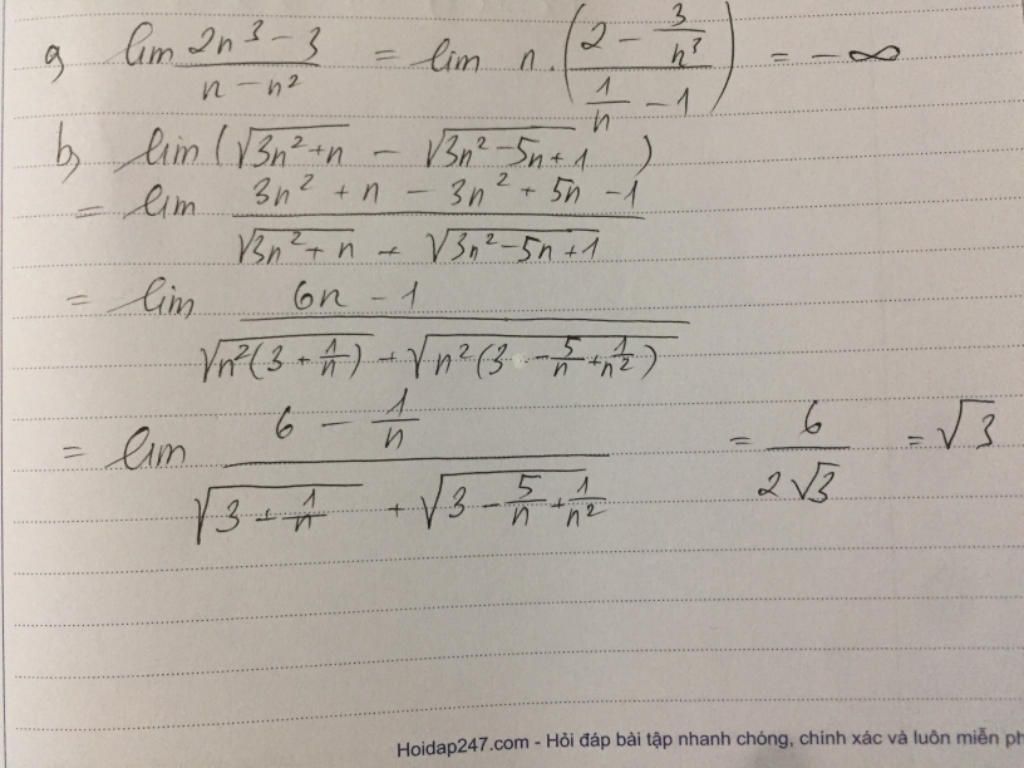 a) lim (2n³ - 3)/(n - n²) = lim n.((2 - 3/n³)/(1/n - 1)) = -∞
b) lim (√(3n²+n) - √(3n²-5n+1))
= lim (3n² + n - 3n² + 5n - 1)/(√(3n²+n) + √(3n²-5n+1))
= lim (6n - 1)/(√(n²(3+1/n)) + √(n²(3-5/n+1/n²)))
= lim (6 - 1/n)/(√(3+1/n) + √(3-5/n+1/n²)) = 6/(2√3) = √3
Hoidap247.com - Hỏi đáp bài tập nhanh chóng, chính xác và luôn miễn ph